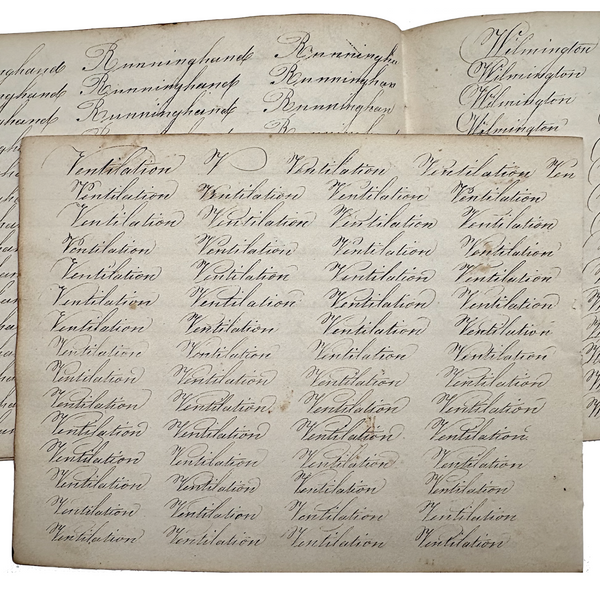 nghand Runninghand Runningh
nghand Runninghand Runninghan
hand Runninghand Runninghan
Wilmington
Wilmington
Wilmington
Wilmington
Ventilation V Ventilation Ventilation Ven
Ventilation Ventilation Ventilation Ventilation
Ventilation Ventilation Ventilation Ventilation
Ventilation Ventilation Ventilation Ventilation
Ventilation Ventilation Ventilation Ventilation
Ventilation Ventilation Ventilation Ventilation
Ventilation Ventilation Ventilation Ventilation
Ventilation Ventilation Ventilation Ventilation
Ventilation Ventilation Ventilation Ventilation
Ventilation Ventilation. Ventilation Ventilation
Ventilation Ventilation Ventilation Ventilation.
Ventilation Ventilation Ventilation Ventilation
Ventilation Ventilation Ventilation Ventilation
Ventilation Ventilation Ventilation Ventilation
Ventilation Ventilation Ventilation Ventilation